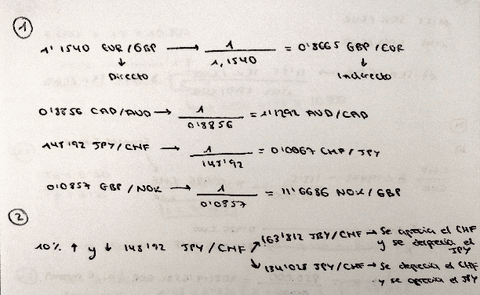 1
1'1540 EUR/GBP → 1/1,1540 = 0'8665 GBP/EUR
↓ Directo ↓ Indirecto
0'8856 CAD/AUD → 1/0'8856 = 1'1292 AUD/CAD
148'92 JPY/CHF → 1/148'92 = 0'0067 CHF/JPY
0'0857 GBP/NOK → 1/0'0857 = 11'6686 NOK/GBP
2
10% ↑ y ↓ 148'92 JPY/CHF
163'812 JPY/CHF → Se aprecia el CHF
y se deprecia el
JPY
134'028 JPY/CHF → Se deprecia el CHF
y se aprecia el JPY